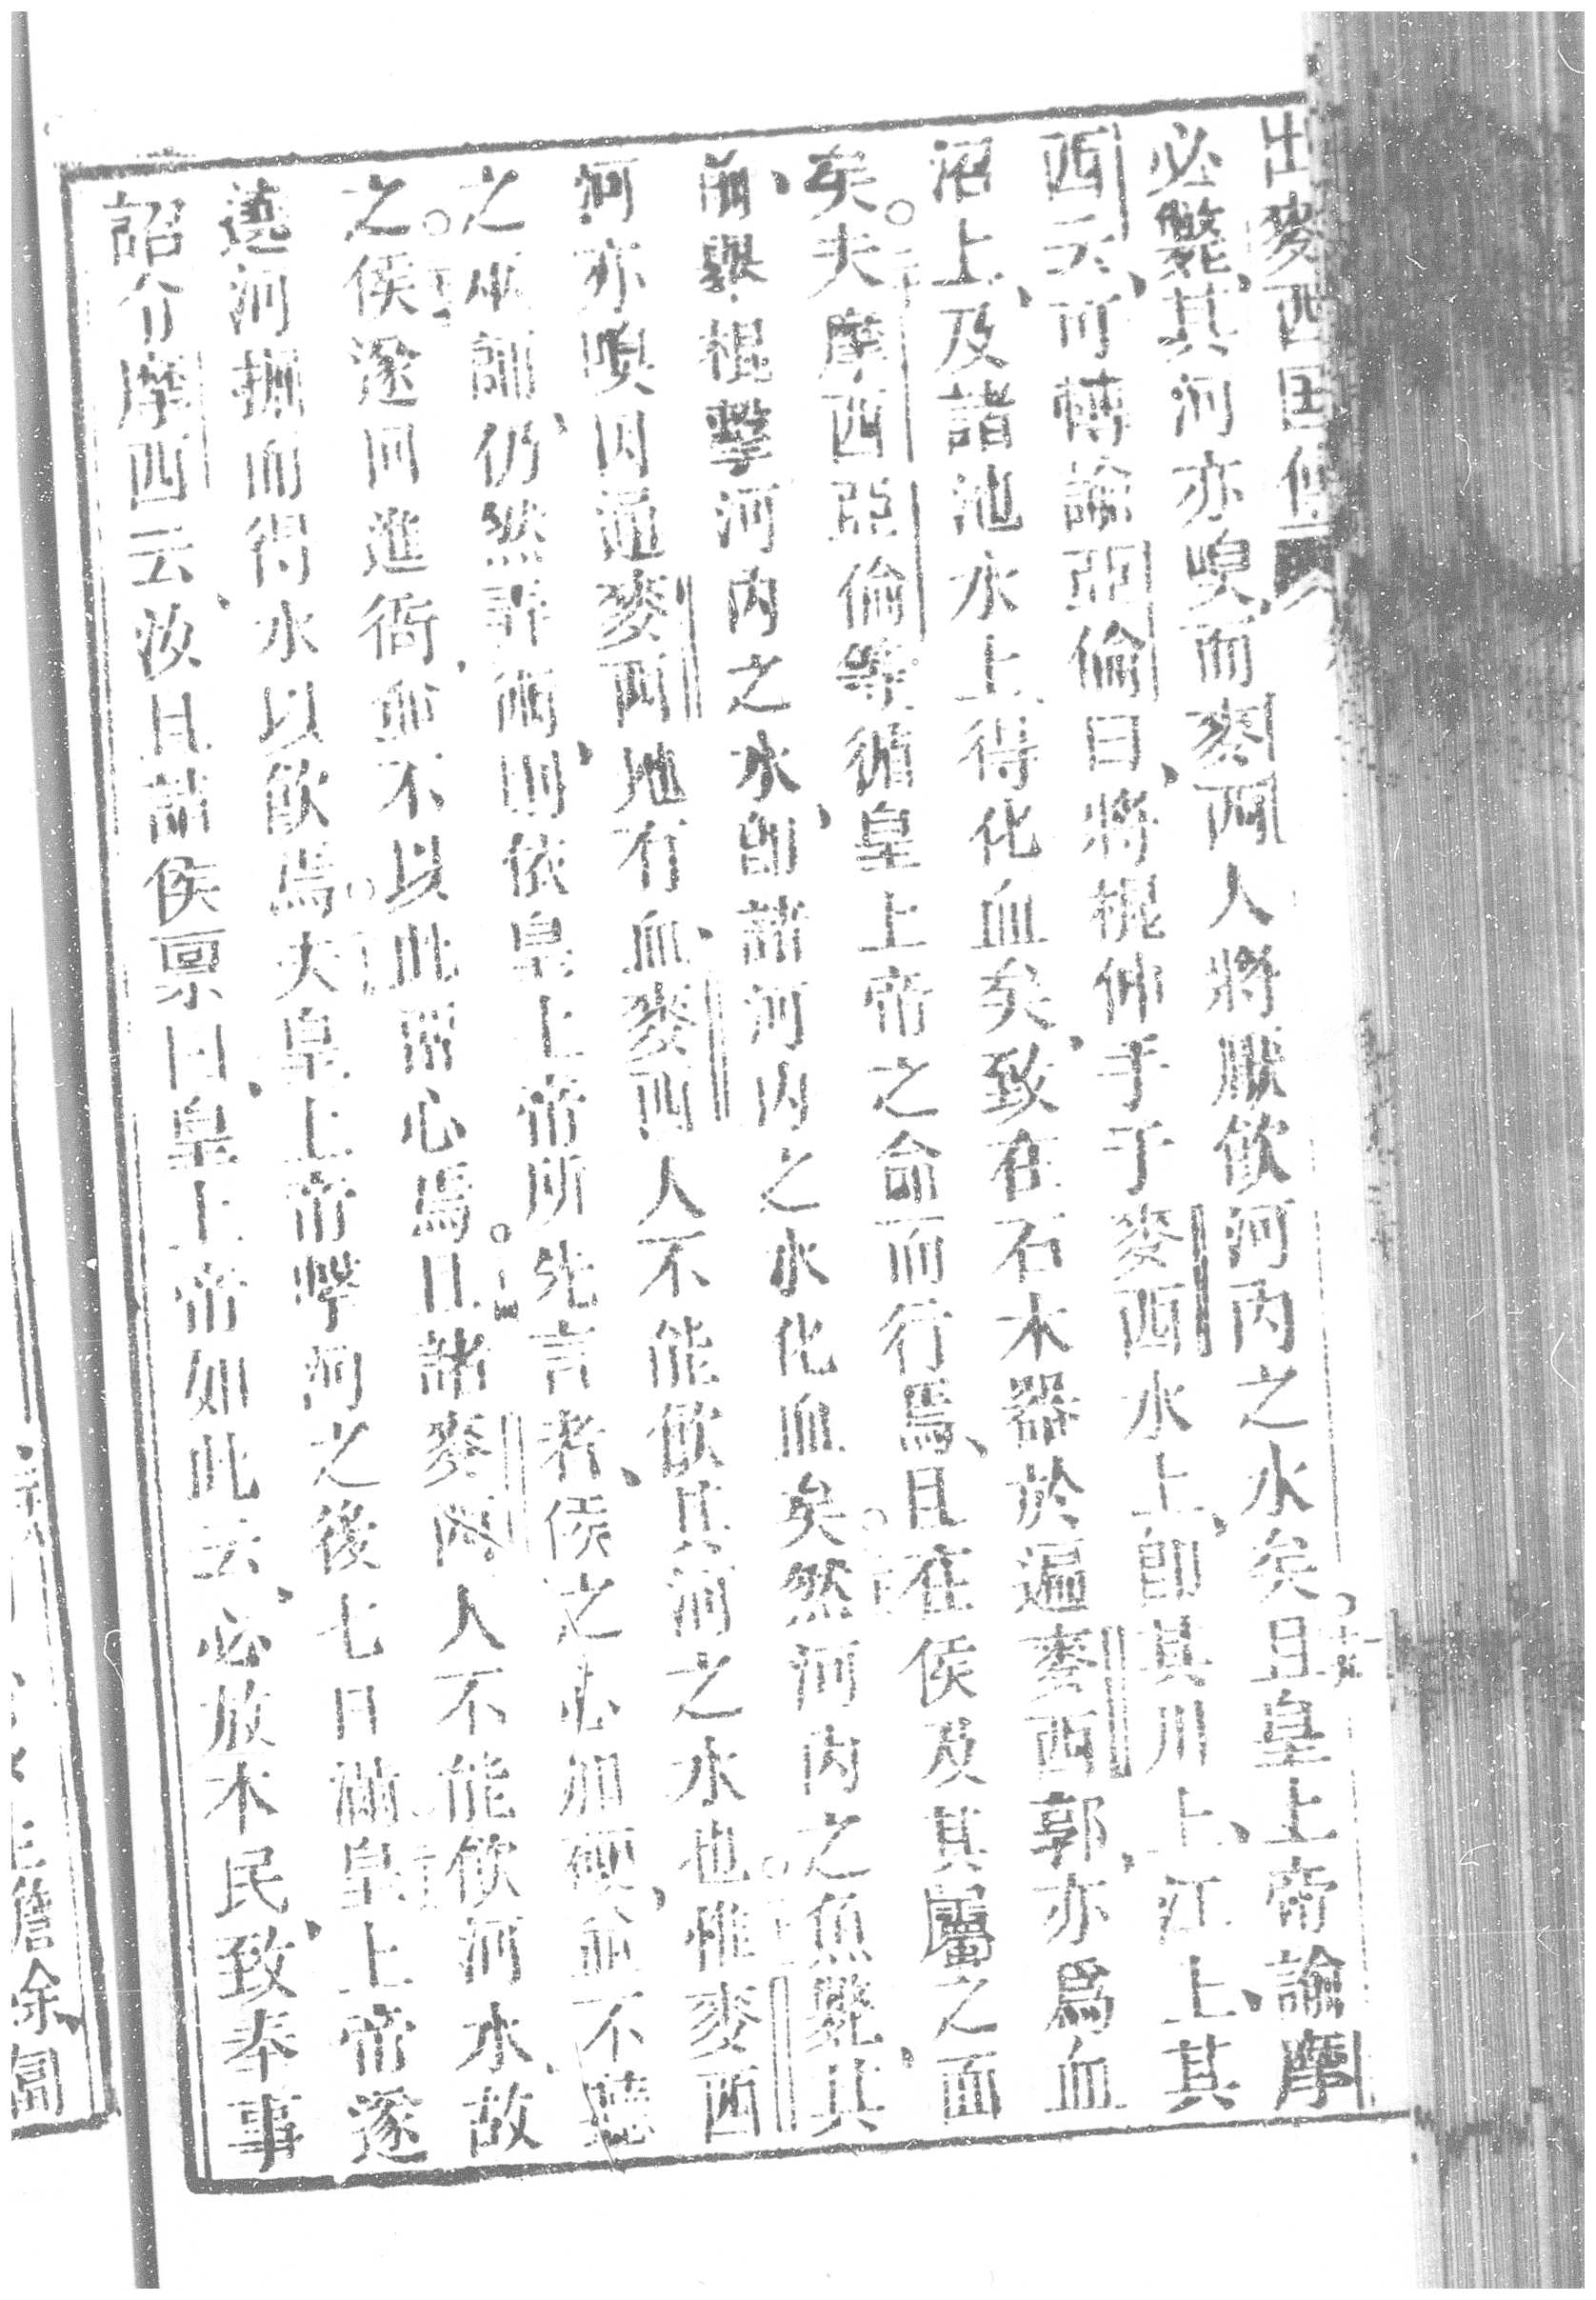 出麥西國傳
必斃其河亦嗅而麥西人將厭飲河內之水矣且皇上帝諭摩
西云可轉諭亞倫曰將棍伸手于麥西水上卽其川上江上其
沼上及諸池水上得化血矣致在石木器於遍麥西郭亦爲血
矣夫摩西亞倫等循皇上帝之命而行焉且在侯及其屬之面
前舉棍擊河內之水卽諸河內之水化血矣然河內之魚斃其
河亦嗅因通麥西地有血麥西人不能飲其河之水也惟麥西
之巫師仍然弄術則依皇上帝所先言者侯之心加硬並不聽
之侯遂回進衙並不以此留心焉且諸麥西人不能飲河水故
遶河掘而得水以飲焉夫皇上帝擊河之後七日滿皇上帝遂
詔介摩西云汝且詣侯禀曰皇上帝如此云必放本民致奉事